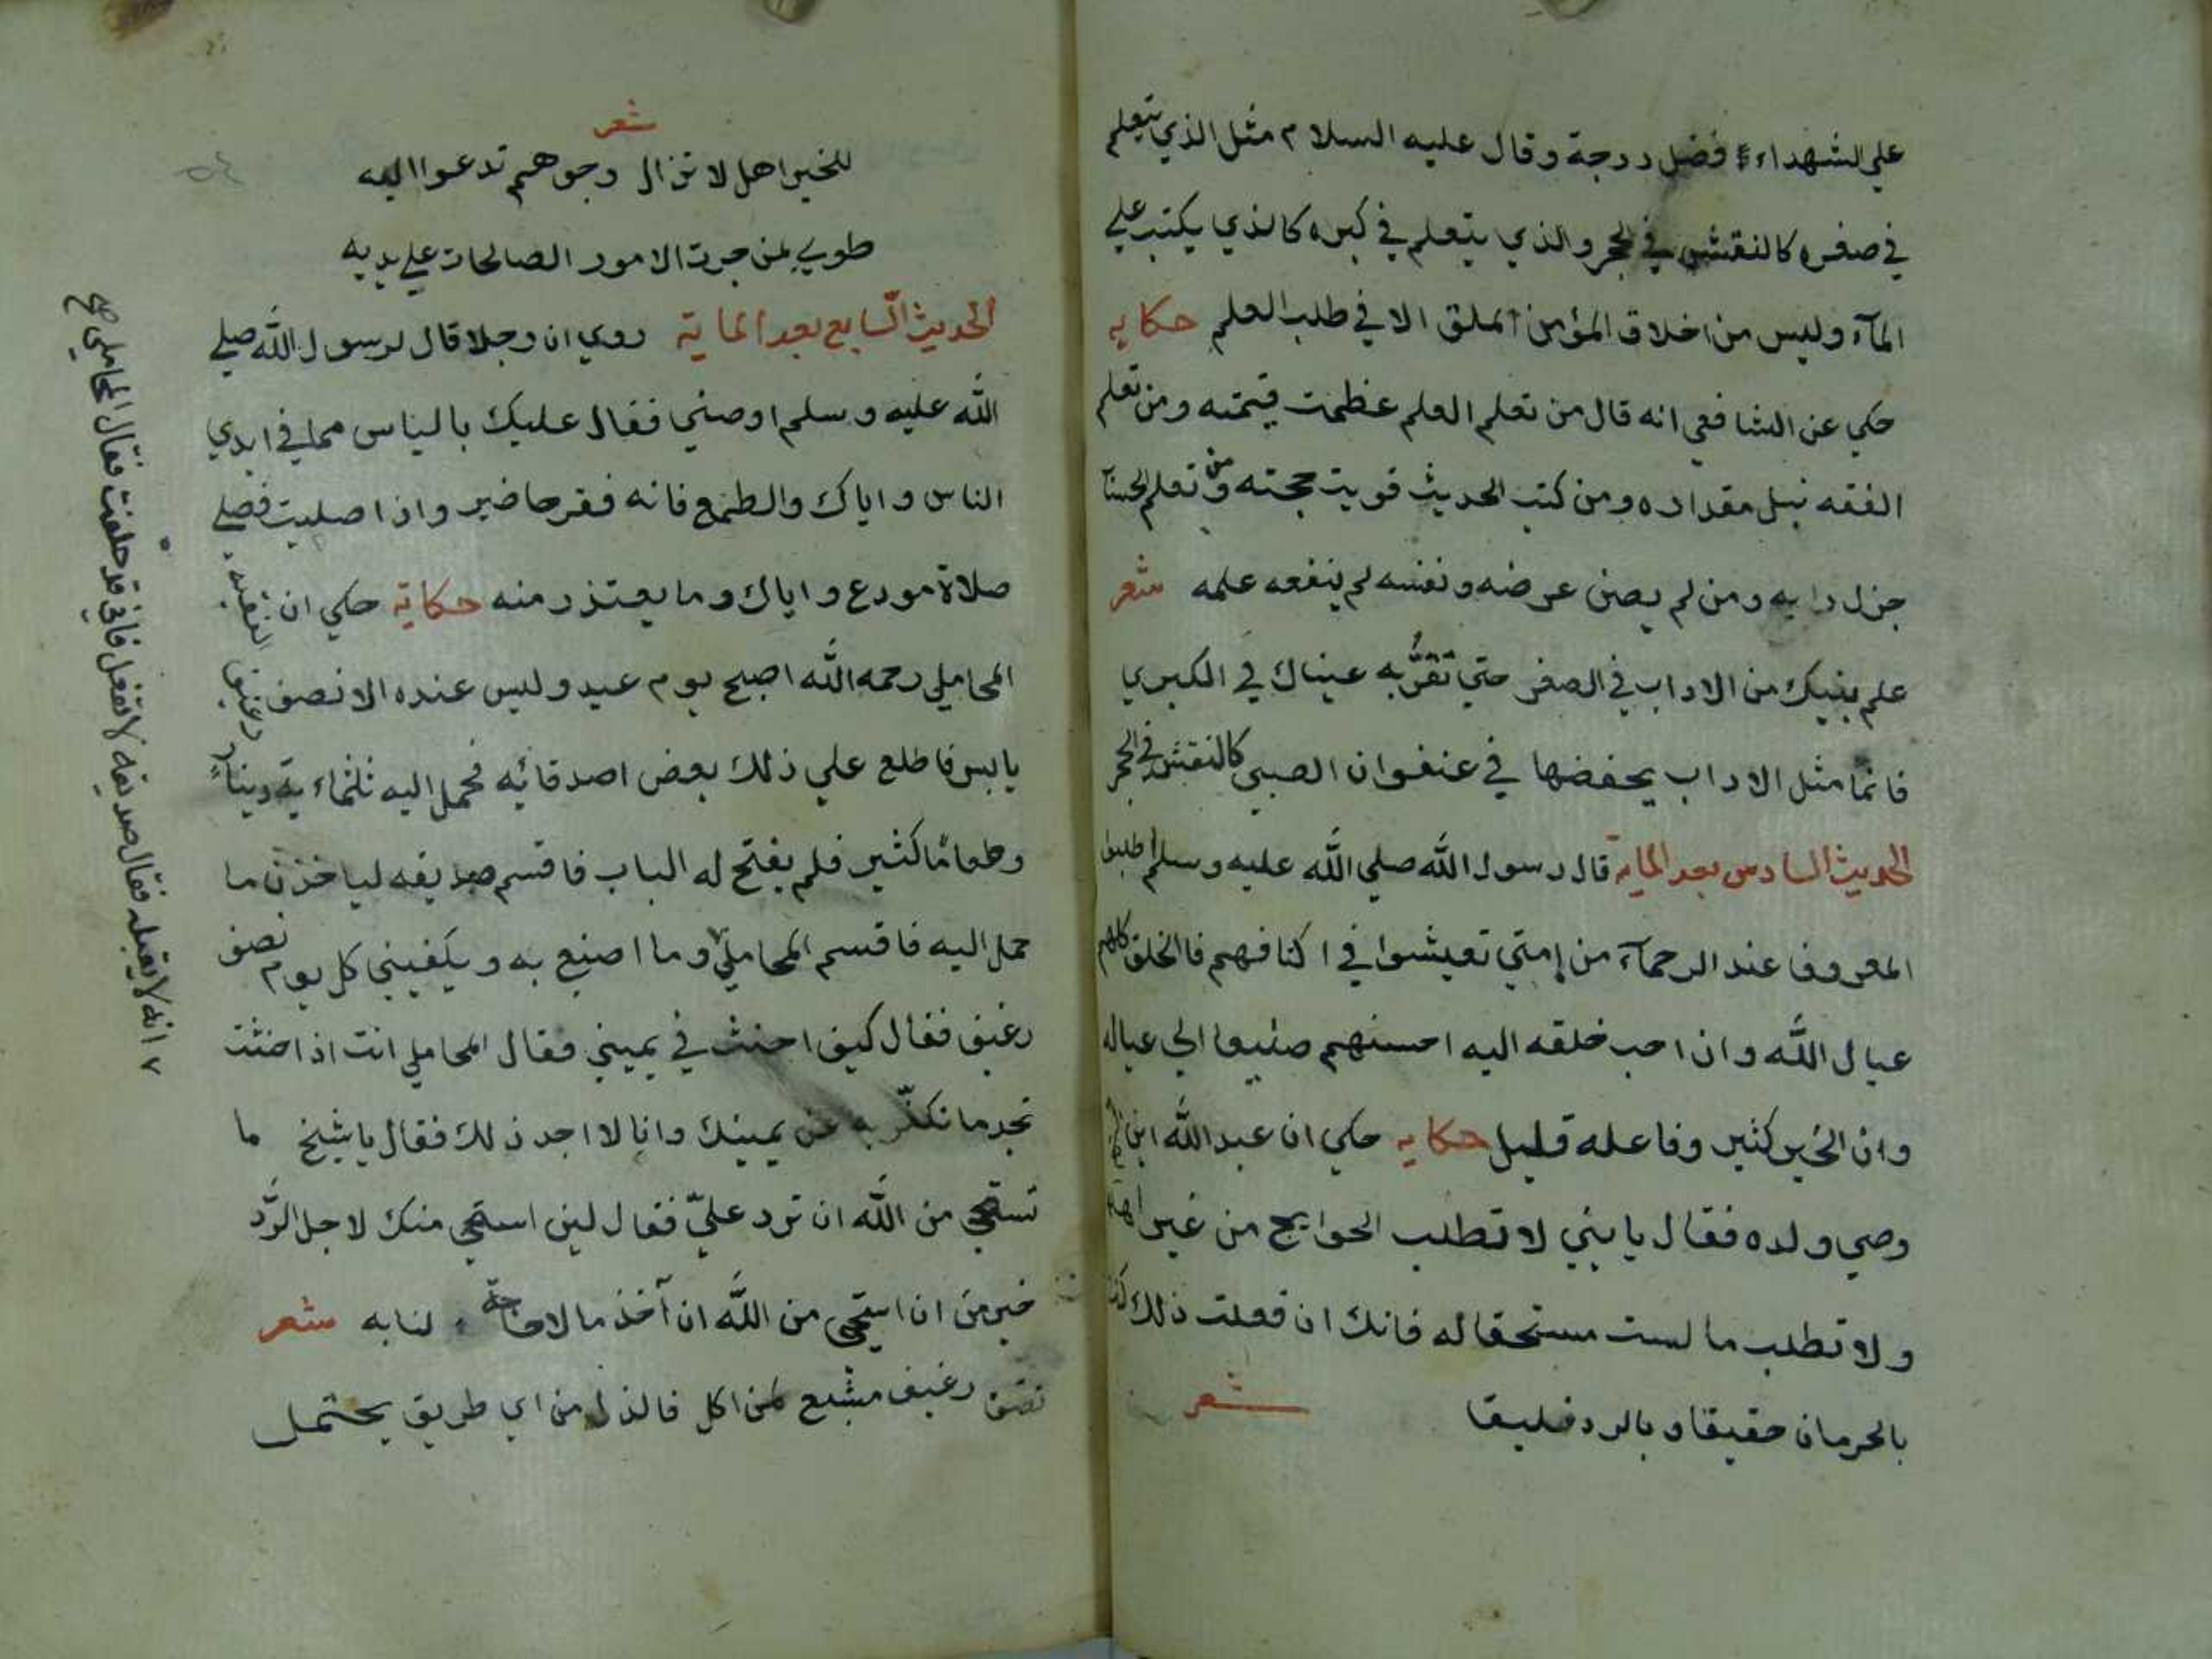 علي الشهداء فضل درجة وقال عليه السلام مثل الذي يتعلم
في صغره كالنقش في الحجر والذي يتعلم في كبره كالذي يكتب علي
المآء وليس من اخلاق المؤمن الملق الا في طلب العلم حكايه
حكي عن الشافعي انه قال من تعلم العلم عظمت قيمته ومن تعلم
الفقه نبل مقداره ومن كتب الحديث قويت حجته ومن تعلم الحساب
جزل رايه ومن لم يصن عرضه ونفسه لم ينفعه علمه شعر
علم بنيك من الاداب في الصغر حتي تقرّ به عيناك في الكبري
فانما مثل الاداب يحفضها في عنفوان الصبي كالنقش في الحجر
الحديث السادس بعد المايه قال رسول الله صلي الله عليه وسلم اطلبوا
المعروف عند الرحمآء من امتي تعيشوا في اكنافهم فالخلق كلهم
عيال الله وان احب خلقه اليه احسنهم صنيعا الي عياله
وان الخير كثير وفاعله قليل حكايه حكي ان عبد الله ابن
وصي ولده فقال يا بني لا تطلب الحوايج من غير اهلها
ولا تطلب ما لست مستحقا له فانك ان فعلت ذلك كنت
بالحرمان حقيقا وبالرد خليقا شعر
شعر
للخير اهل لا تزال وجوههم تدعوا اليه
طوبي لمن جرت الامور الصالحات علي يديه
الحديث السابع بعد الماية روي ان رجلا قال لرسول الله صلي
الله عليه وسلم اوصني فقال عليك بالياس مما في ايدي
الناس واياك والطمع فانه فقر حاضر واذا صليت فصلي
صلاة مودع واياك وما يعتذر منه حكاية حكي ان الفقيه
المحاملي رحمه الله اصبح يوم عيد وليس عنده الا نصف رغيف
يابس فاطلع علي ذلك بعض اصدقائه فحمل اليه ثلثماءية دينار
وطعاما كثير فلم يفتح له الباب فاقسم صديقه لياخذن ما
حمل اليه فاقسم المحاملي وما اصنع به ويكفيني كل يوم نصف
رغيف فقال كيف احنث في يميني فقال المحاملي انت اذا حنثت
تجد ما تكفّر به عن يمينك وانا لا اجد ذلك فقال يا شيخ ما
تستحي من الله ان ترد عليّ فقال لين استحي منك لاجل الرّد
خير من ان استحي من الله ان آخذ ما لا حاجة لنا به شعر
نصف رغيف مشبع لمن اكل فالذل من اي طريق يحتمل
انه لا يقبله فقال صديقه لا تفعل فاني قد حلفت فقال المحاملي صح